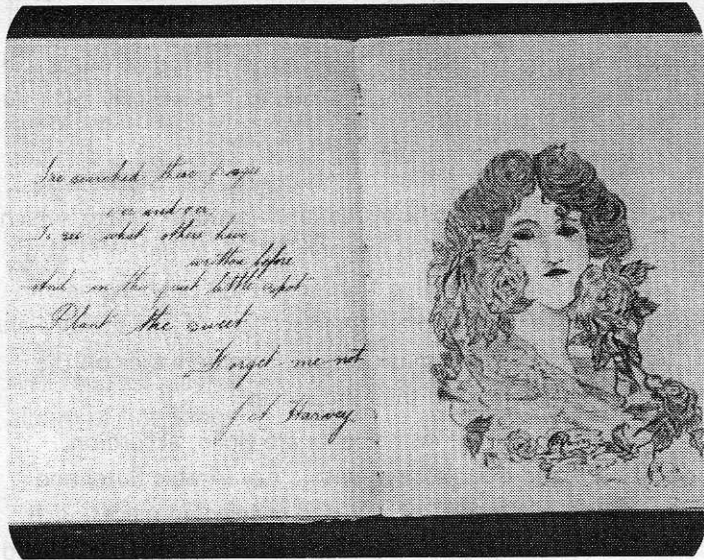 I've searched these pages
o'er and o'er
To see what others have
written before
And in this quiet little spot
Plant the sweet
Forget me not
J A Harvey